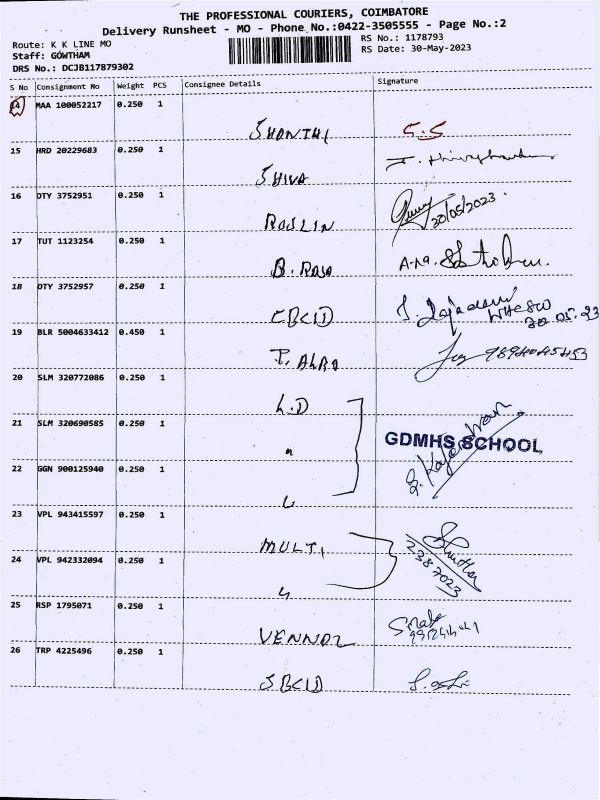 THE PROFESSIONAL COURIERS, COIMBATORE
Delivery Runsheet - MO - Phone No.:0422-3505555 - Page No.:2
Route: K K LINE MO
RS No.: 1178793
Staff: GOWTHAM
RS Date: 30-May-2023
DRS No.: DCJB117879302
S No Consignment No Weight PCS Consignee Details Signature
14 MAA 100052217 0.250 1
SHANTHI S.S
15 HRD 20229683 0.250 1
SHIVA
16 OTY 3752951 0.250 1
ROSLIN 20/05/2023
17 TUT 1123254 0.250 1
B. RAJA
18 OTY 3752957 0.250 1
CBCID
19 BLR 5004633412 0.450 1
20 SLM 320772086 0.250 1
L.D
21 SLM 320690585 0.250 1
"
GDMHS SCHOOL
22 GGN 900125940 0.250 1
23 VPL 943415597 0.250 1
MULTI
24 VPL 942332094 0.250 1
25 RSP 1795071 0.250 1
26 TRP 4225496 0.250 1
SBCID